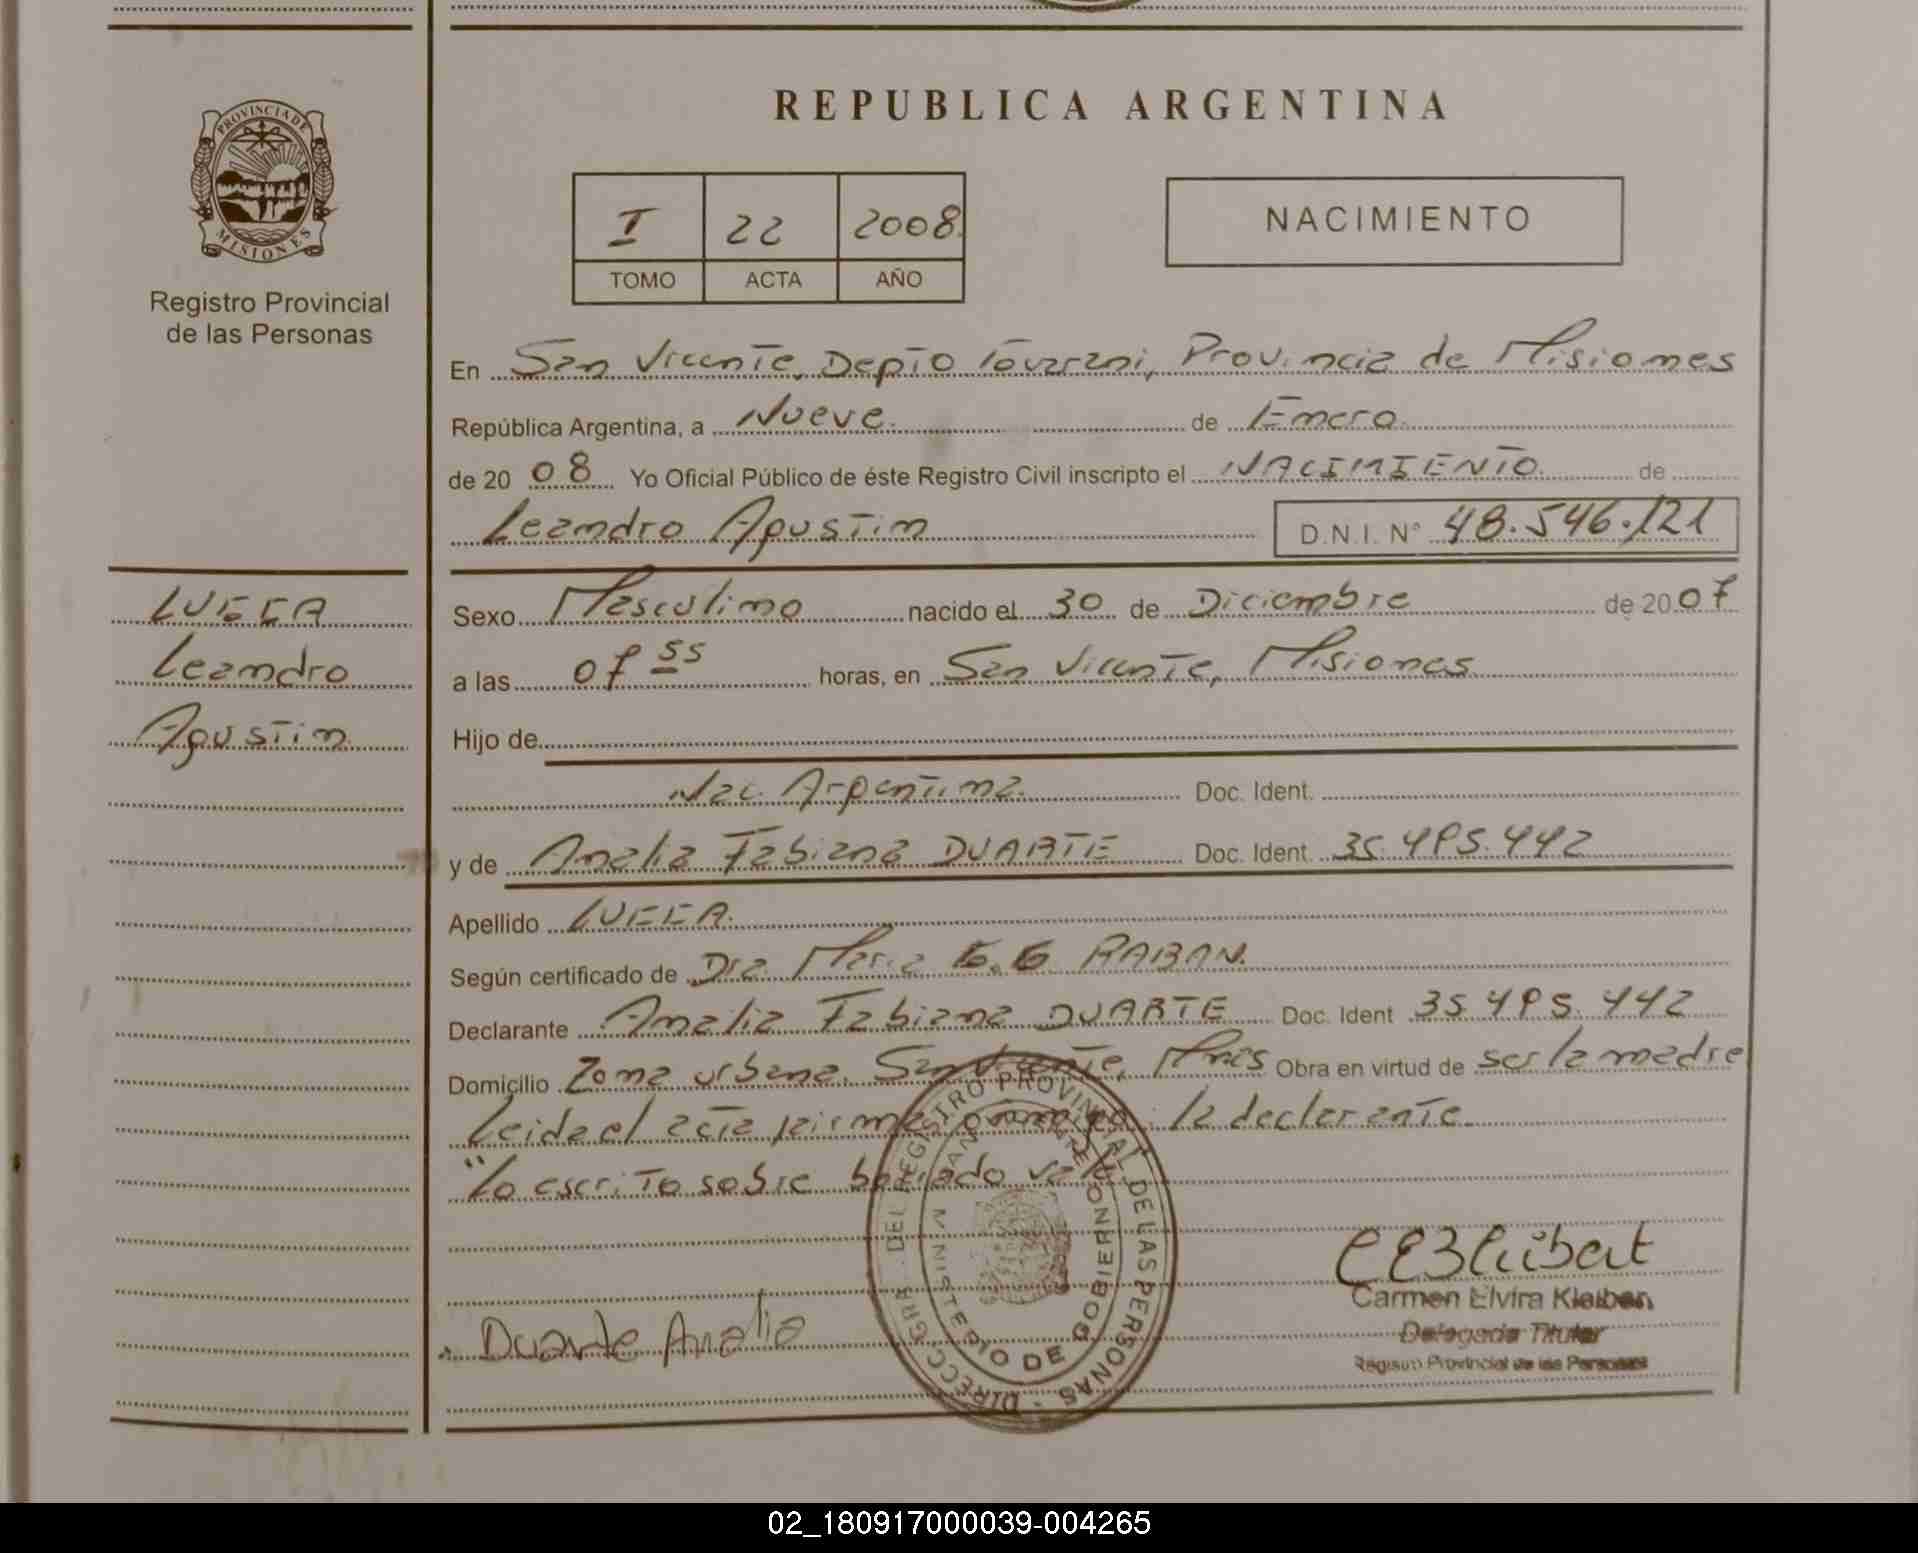 PROVINCIA DE
MISIONES
Registro Provincial
de las Personas
REPUBLICA ARGENTINA
I 22 2008
TOMO ACTA AÑO
NACIMIENTO
En San Vicente, Depto Guarani, Provincia de Misiones
República Argentina, a Nueve de Enero
de 20 08 Yo Oficial Público de éste Registro Civil inscripto el NACIMIENTO de
Leandro Agustin D.N.I. N° 48.546.121
LUCCA
Leandro
Agustin
Sexo Masculino nacido el 30 de Diciembre de 20 07
a las 07 55 horas, en San Vicente, Misiones
Hijo de
Nac. Argentina Doc. Ident.
y de Analia Fabiana DUARTE Doc. Ident. 35.495.442
Apellido
Según certificado de Dra. Maria RABAN.
Declarante Analia Fabiana DUARTE Doc. Ident 35.495.442
Domicilio Zona urbana, San Vicente, Mnes Obra en virtud de ser la madre
Leida el acta firma conmigo: la declarante.
"Lo escrito sobre borrado vale
DIRECC. GRAL. DEL REGISTRO PROVINCIAL DE LAS PERSONAS
MINISTERIO DE GOBIERNO
Duarte Analia
Carmen Elvira Kleiben
Delegada Titular
Registro Provincial de las Personas
02_180917000039-004265